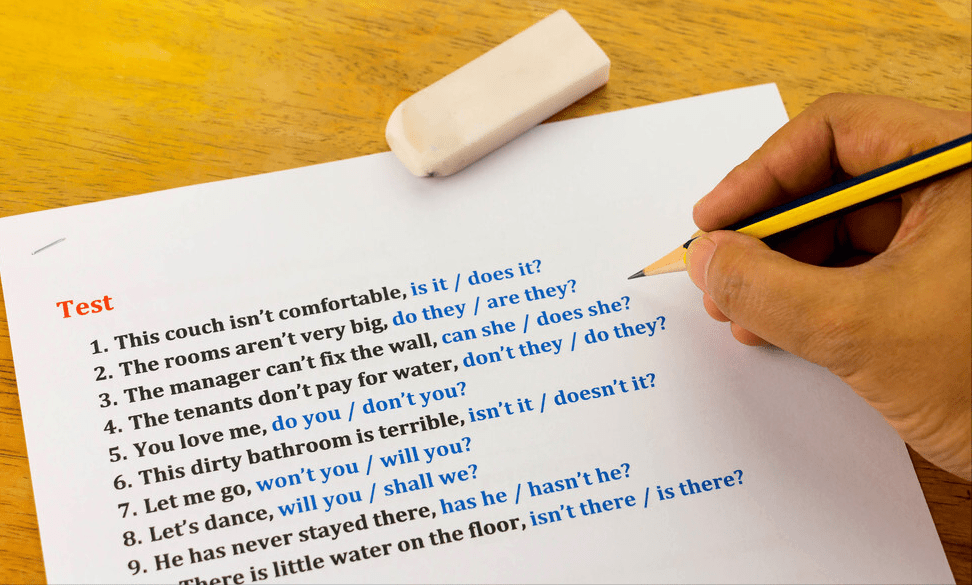 Test
1. This couch isn't comfortable, is it / does it?
2. The rooms aren't very big, do they / are they?
3. The manager can't fix the wall, can she / does she?
4. The tenants don't pay for water, don't they / do they?
5. You love me, do you / don't you?
6. This dirty bathroom is terrible, isn't it / doesn't it?
7. Let me go, won't you / will you?
8. Let's dance, will you / shall we?
9. He has never stayed there, has he / hasn't he?
There is little water on the floor, isn't there / is there?